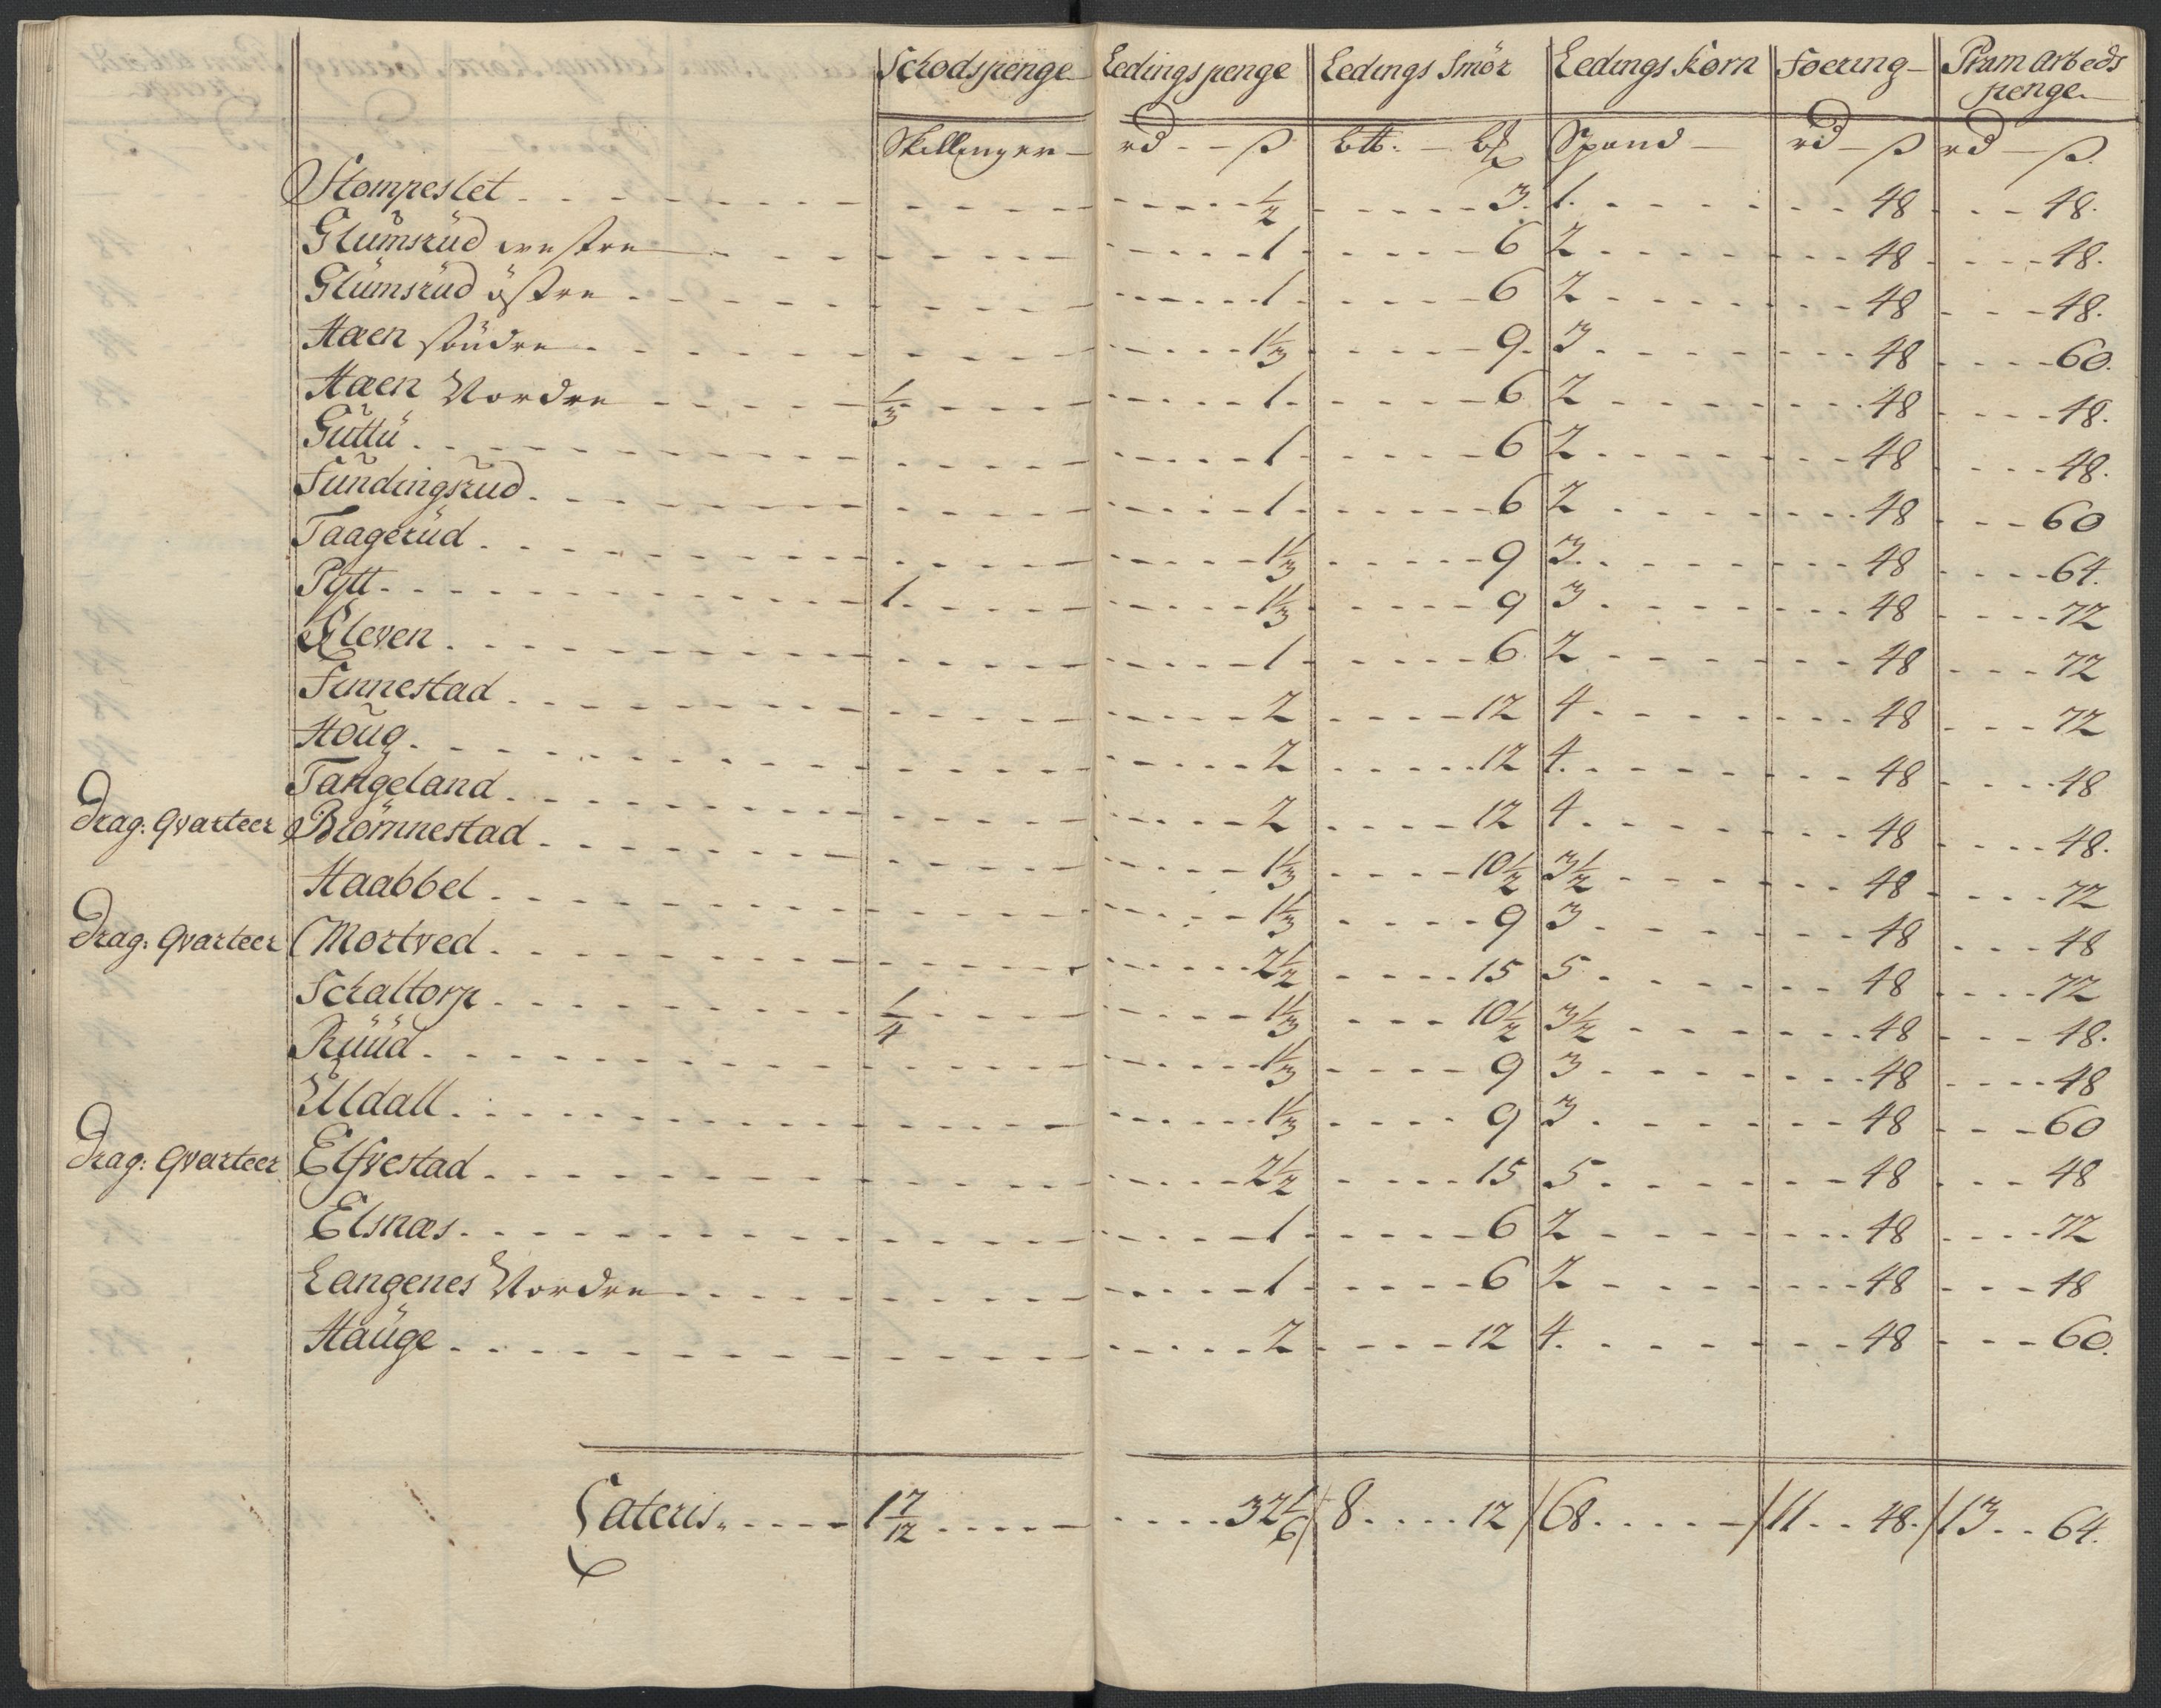 Schodspenge Ledingspenge Ledings Smör Ledings Korn Foering Pram Arbeds penge
Skillinger rd ß b℔. bß Spand rd ß rd ß.
Stompeslet ½ 3. 1. 48 48.
Glumsrüd vestre 1 6 2 48 48.
Glümsrüd östre 1 6 2 48 48.
Haen söndre 1⅓ 9. 3 48 60.
Haen Nordre ⅓ 1 6 2 48 48.
Guttü 1 6 2 48 48.
Fundingsrud 1 6 2 48 60
Taagerüd 1⅓ 9 3 48 64.
Pytt 1 1⅓ 9 3 48 72
Kleven 1 6 2 48 72
Finnestad 2 12 4 48 72
Houg 2 12 4. 48 48
Tangeland 2 12 4 48 48.
Drag: Qvarteer Blömnestad 1⅓ 10½ 3½ 48 72
Haabbel 1⅓ 9 3 48 48
Drag: Qvarteer Mortved 2½ 15 5 48 72
Schaltorp ¼ 1⅓ 10½ 3½ 48 48.
Rüüd 1⅓ 9 3 48 48
Uldall 1⅓ 9 3 48 60
Drag: Qvarteer Elfvestad 2½ 15 5 48 48
Elsnæs 1 6 2 48 72
Langenes Nordre 1 6 2 48 48
Haüge 2 12 4. 48 60.
Lateris 1 7/12 32 1/6 / 8 12 / 68 / 11 48. / 13 64.